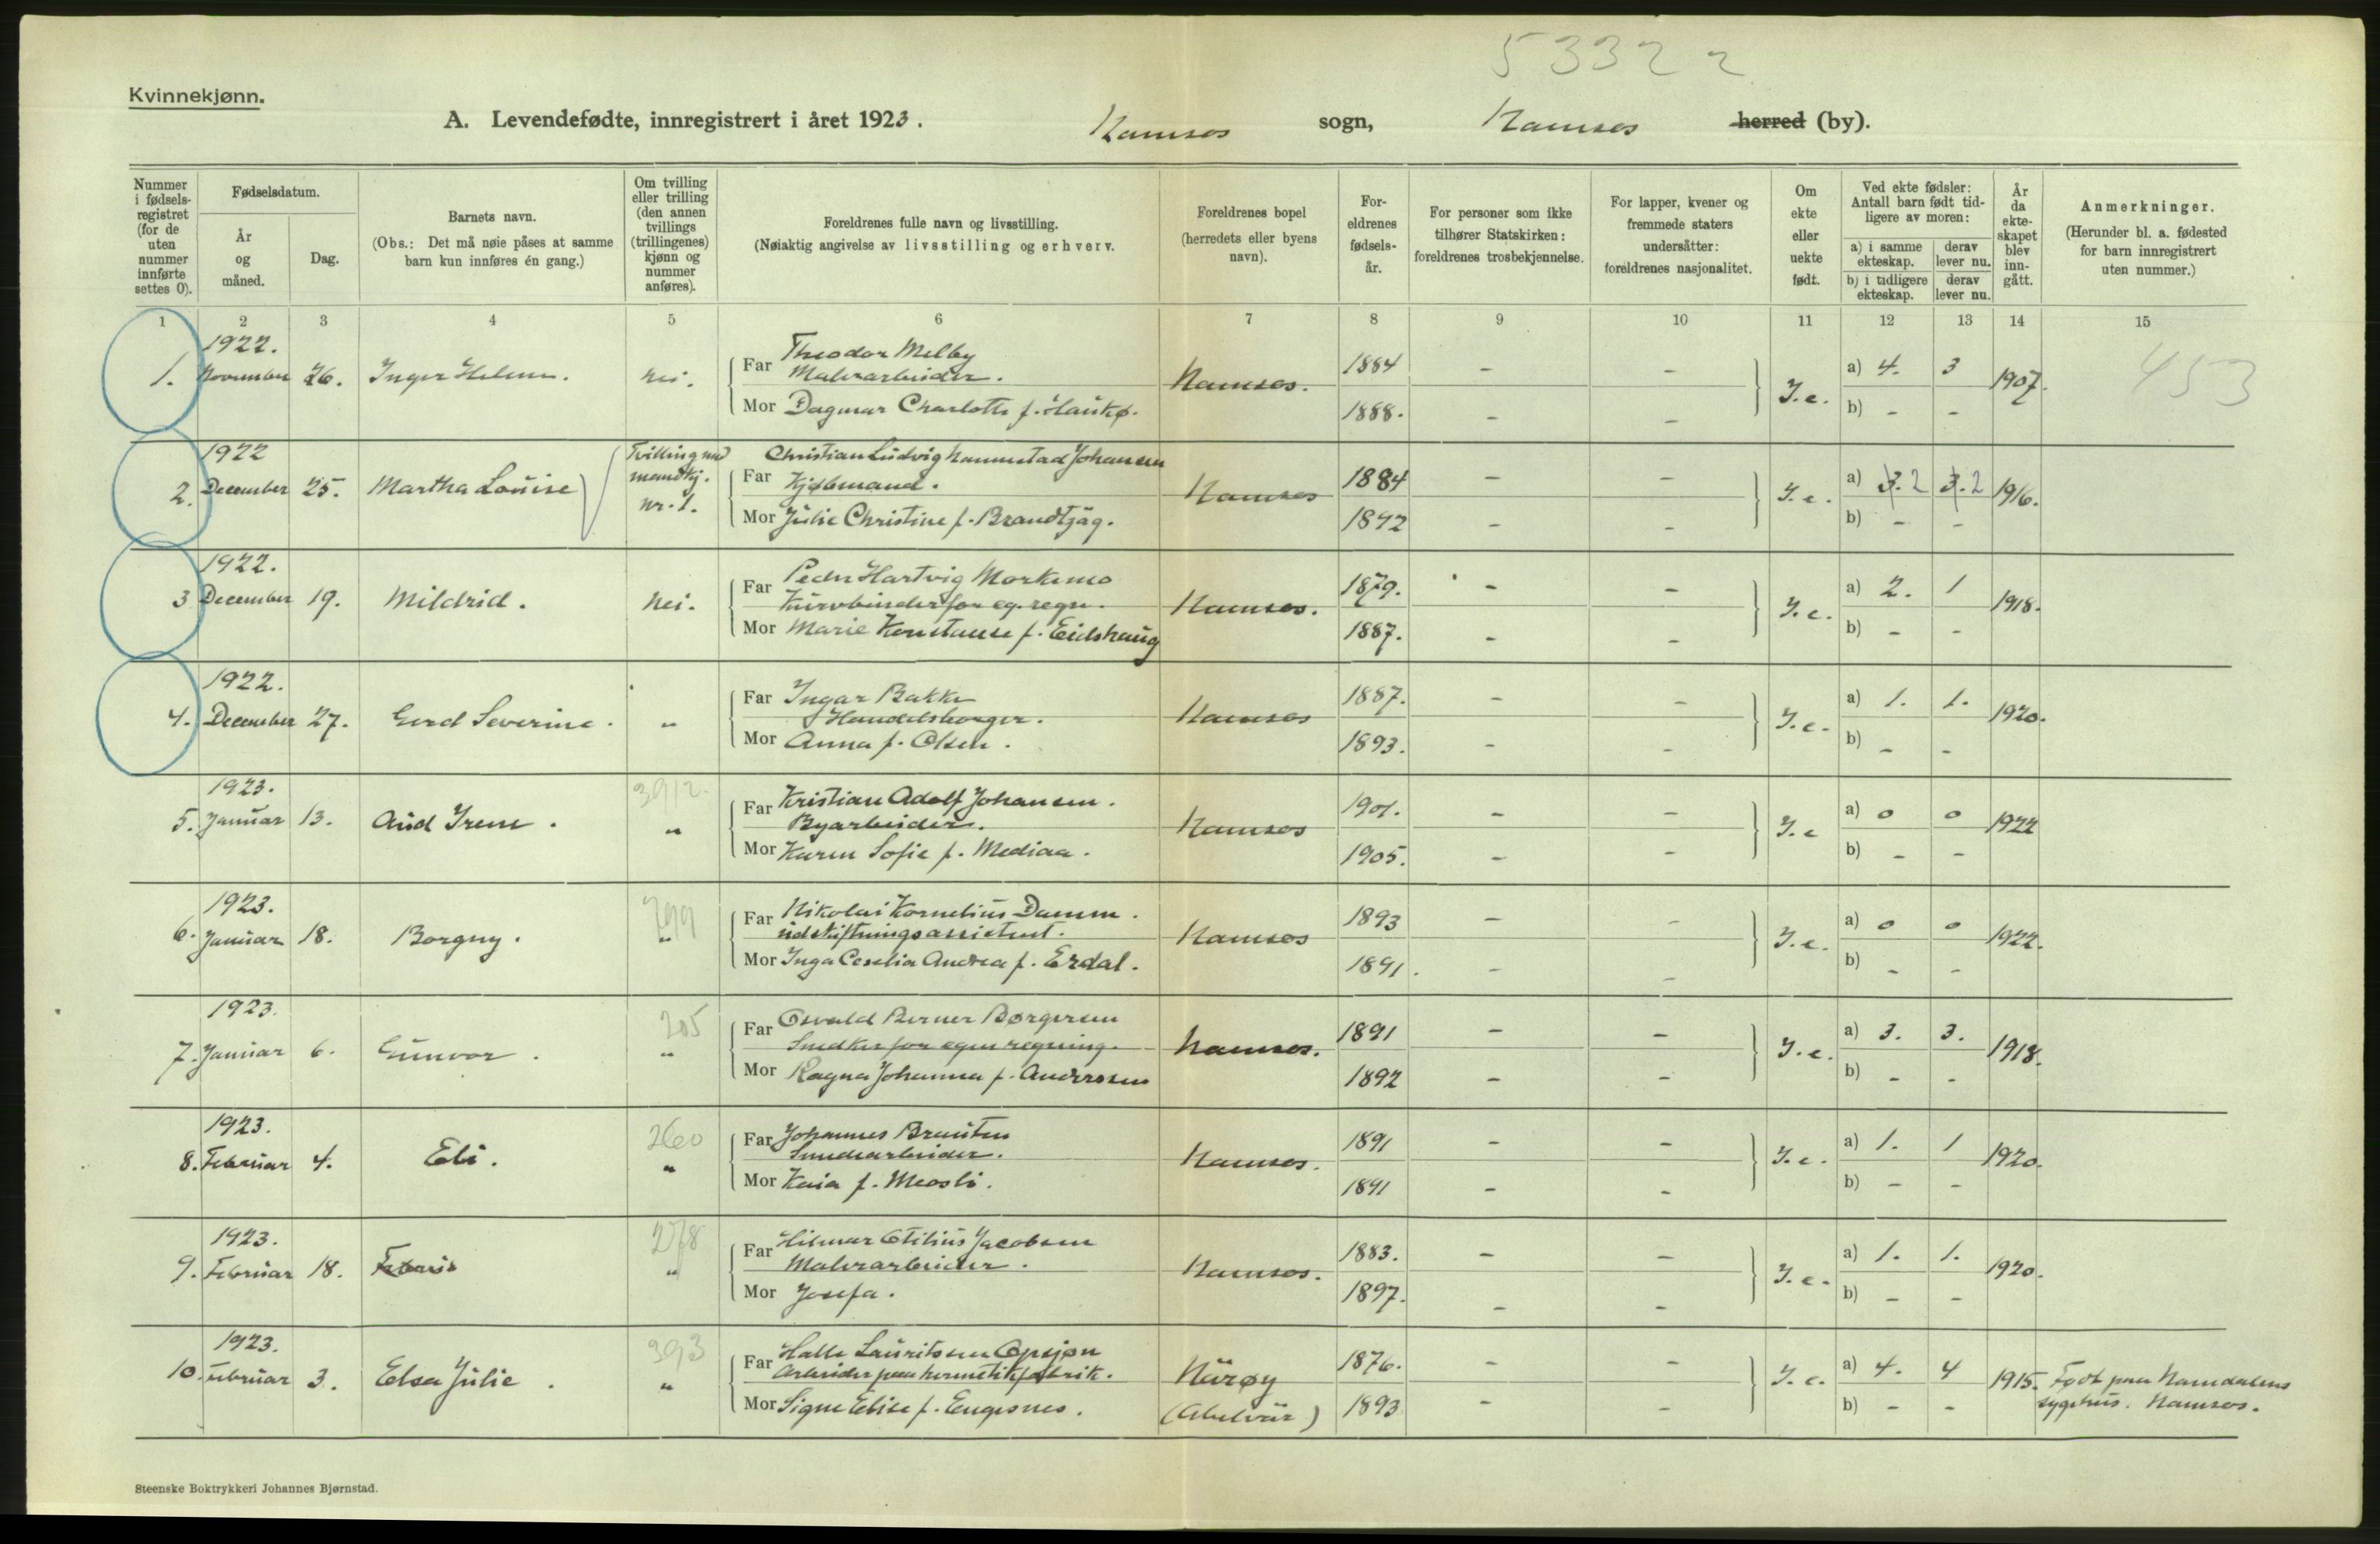 5332 2
Kvinnekjønn.
A. Levendefødte, innregistrert i året 1923. Namsos sogn, Namsos herred (by).
Nummer i fødsels-registret (for de uten nummer innførte settes 0).
Fødselsdatum.
År og måned.
Dag.
Barnets navn.
(Obs.: Det må nøie påses at samme barn kun innføres én gang.)
Om tvilling eller trilling (den annen tvillings (trillingenes) kjønn og nummer anføres).
Foreldrenes fulle navn og livsstilling.
(Nøiaktig angivelse av livsstilling og erhverv.
Foreldrenes bopel (herredets eller byens navn).
For-eldrenes fødsels-år.
For personer som ikke tilhører Statskirken: foreldrenes trosbekjennelse.
For lapper, kvener og fremmede staters undersåtter: foreldrenes nasjonalitet.
Om ekte eller uekte født.
Ved ekte fødsler: Antall barn født tid-ligere av moren:
a) i samme ekteskap.
derav lever nu.
b) i tidligere ekteskap.
derav lever nu.
År da ekte-skapet blev inn-gått.
Anmerkninger.
(Herunder bl. a. fødested for barn innregistrert uten nummer.)
1 2 3 4 5 6 7 8 9 10 11 12 13 14 15
1922.
1. November 26. Inger Helene. Nei.
Far Theodor Melby
Malerarbeider.
Mor Dagmar Charlotte f. Hauskø.
Namsos. 1884 - -
1888. - -
I.e. a) 4. 3 1907. 453
b) - -
1922
2. December 25. Martha Louise
Tvilling med
mandkj.
nr. 1.
Christian Ludvig Hammestad Johansen
Far Kjøbmand.
Mor Julie Christine f. Brandtzæg.
Namsos 1884 - -
1892 - -
I.e. a) 3. 2 3. 2 1916.
b) - -
1922.
3 December 19. Mildrid. Nei.
Far Peder Hartvig Morkemo
Kurvbinder for eg. regn.
Mor Marie Konstanse f. Eidshaug
Namsos. 1879. - -
1887. - -
I.e. a) 2. 1 1918.
b) - -
1922.
4. December 27. Gerd Severine. "
Far Ingar Bakke
Handelsborger.
Mor Anna f. Olsen.
Namsos 1887. - -
1893. - -
I.e. a) 1. 1. 1920.
b) - -
1923. 3912.
5. Januar 13. Aud Irene. "
Far Kristian Adolf Johansen.
Byarbeider.
Mor Karen Sofie f. Mediaa.
Namsos 1901. - -
1905. - -
I.e a) 0 0 1922
b) - -
1923. 799
6. Januar 18. Borgny. "
Far Nikolai Kornelius Damm.
Udskiftningsassistent.
Mor Inga Ceselia Andrea f. Erdal.
Namsos 1893 - -
1891. - -
I.e. a) 0 0 1922.
b) - -
1923. 205
7. Januar 6. Gunvor. "
Far Osvald Berner Børgersen
Snedker for egen regning.
Mor Ragna Johanna f. Anderssen
Namsos. 1891 - -
1892 - -
I.e. a) 3. 3. 1918.
b) - -
1923. 260
8. Februar 4. Eli. "
Far Johannes Brauten
Smedarbeider.
Mor Kaia f. Meosli.
Namsos. 1891 - -
1891 - -
I.e. a) 1. 1 1920.
b) - -
1923. 278
9. Februar 18. "
Far Hilmar Otilius Jacobsen
Malerarbeider.
Mor Josefa.
Namsos. 1883. - -
1897. - -
I.e. a) 1. 1. 1920.
b) - -
1923. 393
10. Februar 3. Elsa Julie. "
Far Halle Lauritssen Opsjøn
Arbeider paa hermetikfabrik.
Mor Signe Elise f. Engesnes.
Närøy
(Abelvär)
1876. - -
1893 - -
I.e. a) 4. 4 1915. Født paa Namdalens
b) - - sygehus. Namsos.
Steenske Boktrykkeri Johannes Bjørnstad.